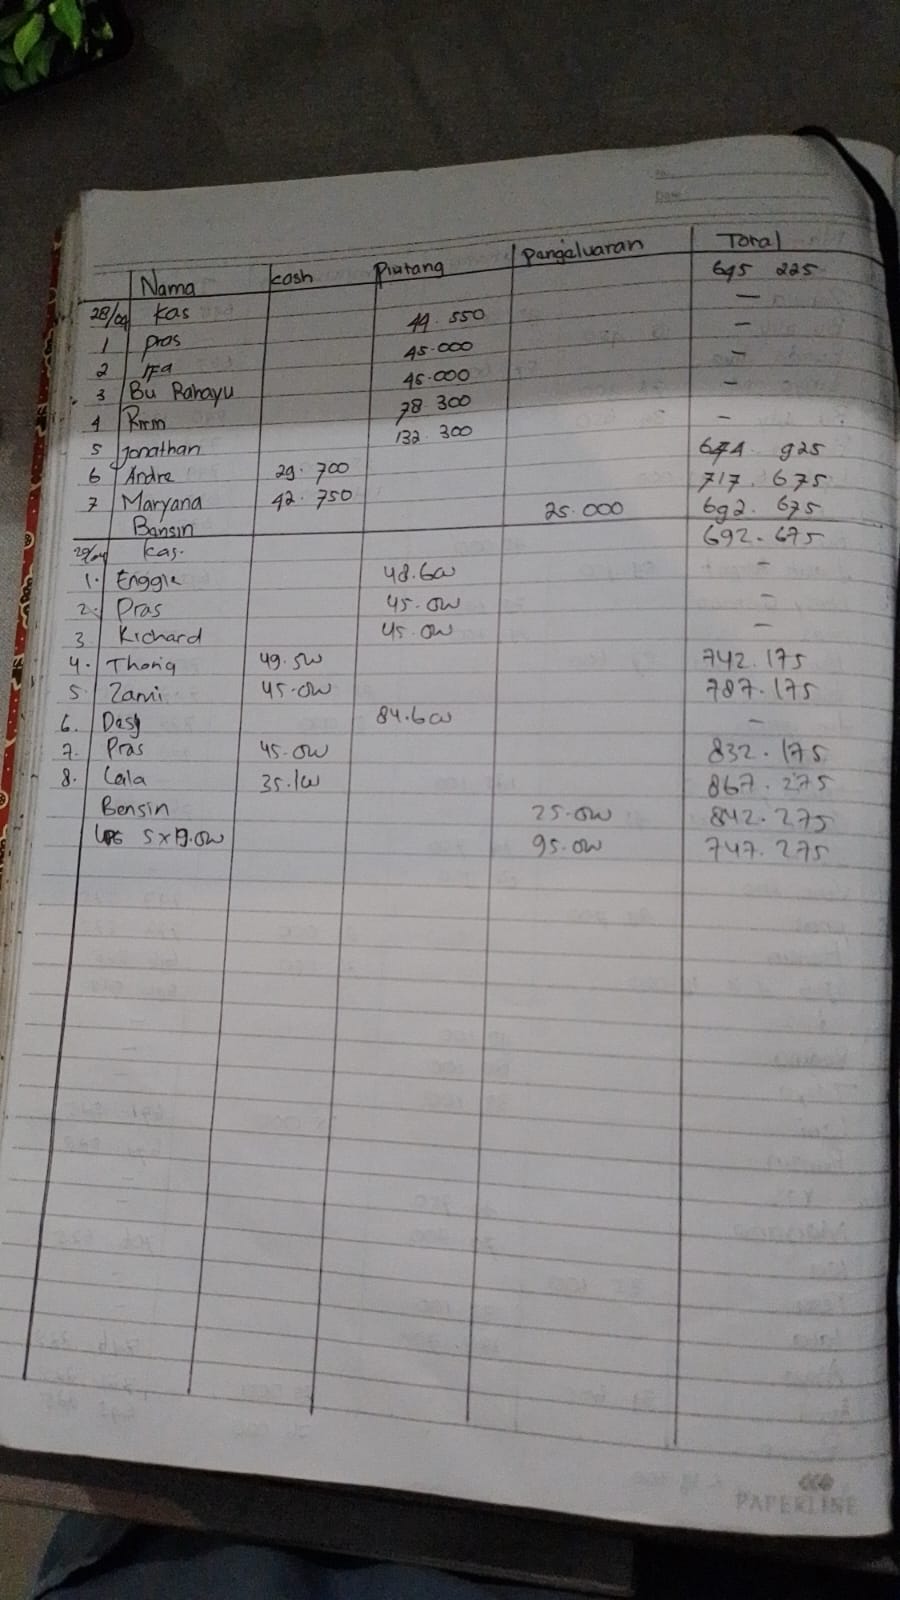 Nama Kash Piutang Pengeluaran Total
28/04 Kas 645 225
1 Pras 44.550 —
2 Ifa 45.000 —
3 Bu Rahayu 45.000 —
4 Ririn 78 300 —
5 Jonathan 132.300 —
6 Andre 29.700 674.925
7 Maryana 42.750 717.675
Bansin 25.000 692.675
29/04 Kas. 692.675
1. Enggle 48.600 —
2. Pras 45.000 —
3. Richard 45.000 —
4. Thoriq 49.500 742.175
5. Zami 45.000 787.175
6. Desy 84.600 —
7. Pras 45.000 832.175
8. Lala 35.100 867.275
Bensin 25.000 842.275
5x19.000 95.000 747.275
PAPERLINE